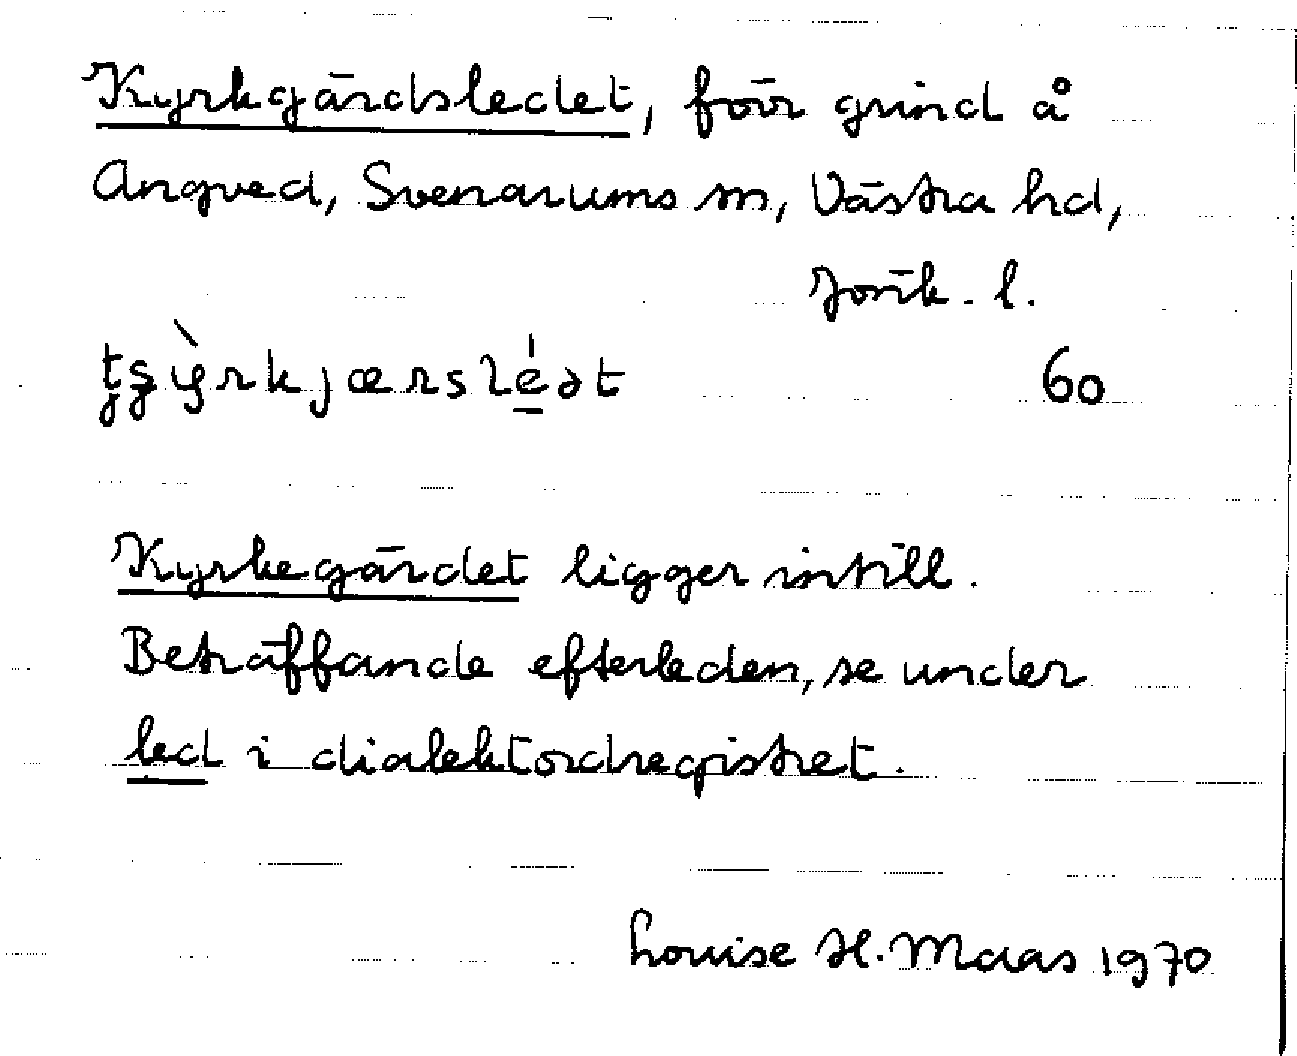 Kyrkgärdsledet, förr grind å
Angved, Svenarums sn, Västra hd,
Jönk. l.
60
Kyrkegärdet ligger intill.
Beträffande efterleden, se under
led i dialektordregistret.
Louise H. Maas 1970